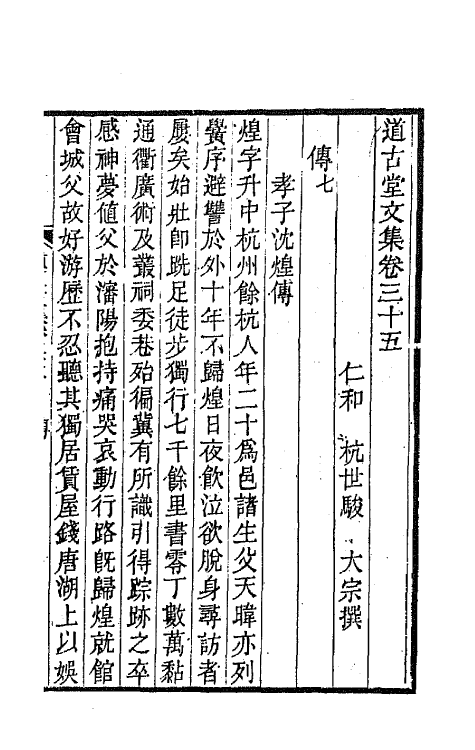 道古堂文集卷三十五
仁和　杭世駿　大宗撰
傳七
孝子沈煌傳
煌字升中杭州餘杭人年二十爲邑諸生父天暐亦列
黌序避讐於外十年不歸煌日夜飲泣欲脫身尋訪者
屢矣始壯卽跣足徒步獨行七千餘里書零丁數萬黏
通衢廣術及叢祠委巷殆徧冀有所識引得踪跡之卒
感神夢値父於瀋陽抱持痛哭哀動行路旣歸煌就館
會城父故好游歷不忍聽其獨居賃屋錢唐湖上以娛